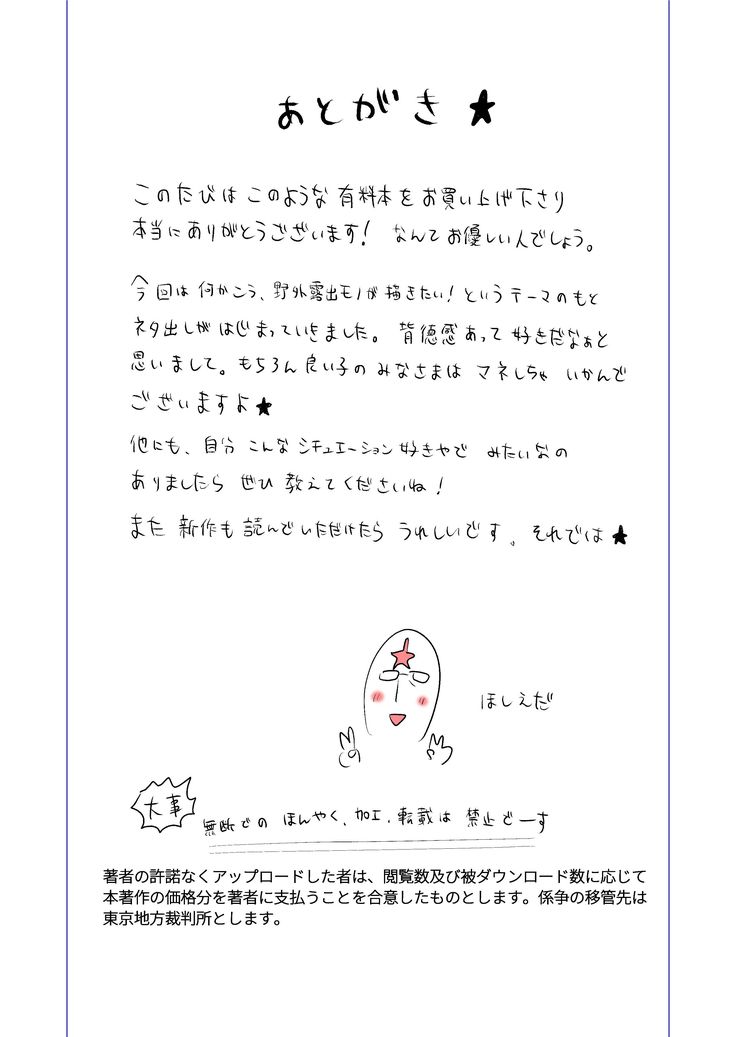 あとがき★
このたびは このような 有料本を お買い上げ下さり
本当にありがとうございます! なんてお優しい人でしょう。
今回は 何かこう、野外露出モノが 描きたい!という テーマのもと
ネタ出しが はじまっていきました。 背徳感あって 好きだなぁと
思いまして。もちろん 良い子の みなさまは マネしちゃ いかんで
ございますよ★
他にも、自分 こんな シチュエーション好きやで みたいなの
ありましたら ぜひ 教えてくださいね!
また 新作も 読んでいただけたら うれしいです。 それでは★
ほしえだ
大事
無断での ほんやく、加工、転載は 禁止でーす
著者の許諾なくアップロードした者は、閲覧数及び被ダウンロード数に応じて
本著作の価格分を著者に支払うことを合意したものとします。係争の移管先は
東京地方裁判所とします。